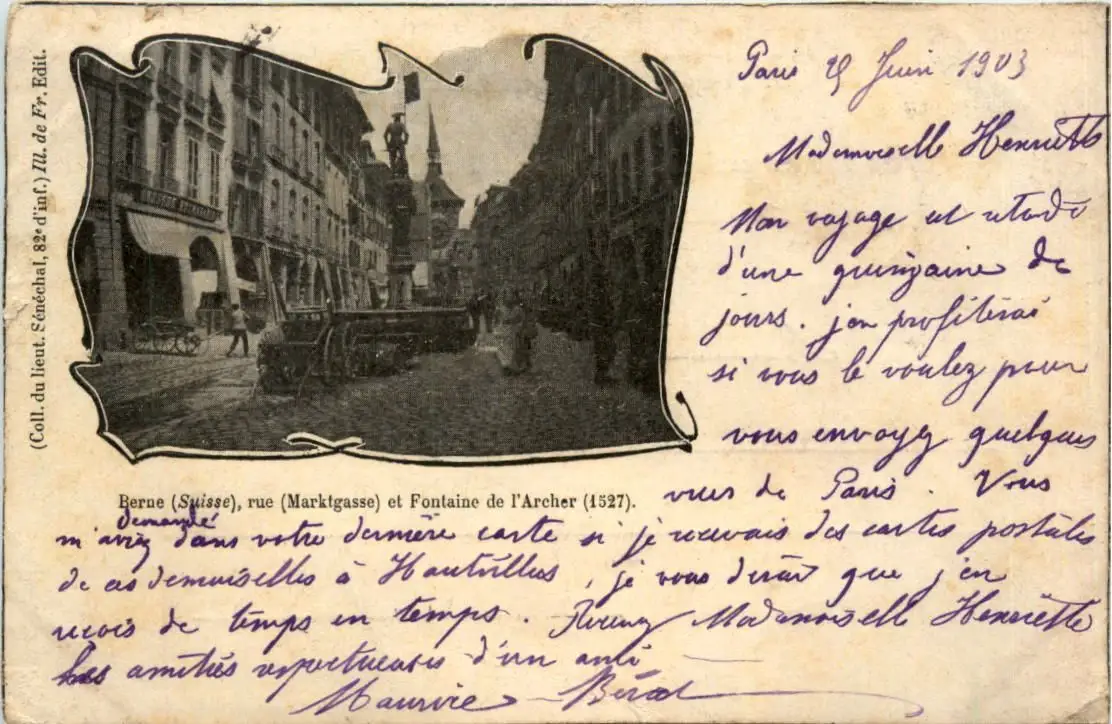 (Coll. du lieut. Sénéchal, 82e d'inf.) Ill. de Fr. Edit.
Berne (Suisse), rue (Marktgasse) et Fontaine de l'Archer (1527).
Paris Juin 1903
Mademoiselle Henriette
Mon voyage est
d'une quinzaine de
jours. j'en profiterai
si vous le voulez pour
vous envoyez quelques
vues de Paris. Vous
m'aviez demandé dans votre dernière carte si je recevais des cartes postales
de ces demoiselles à Hautvillers, je vous dirai que j'en
reçois de temps en temps. Recevez Mademoiselle Henriette
les amitiés respectueuses d'un ami
Maurice